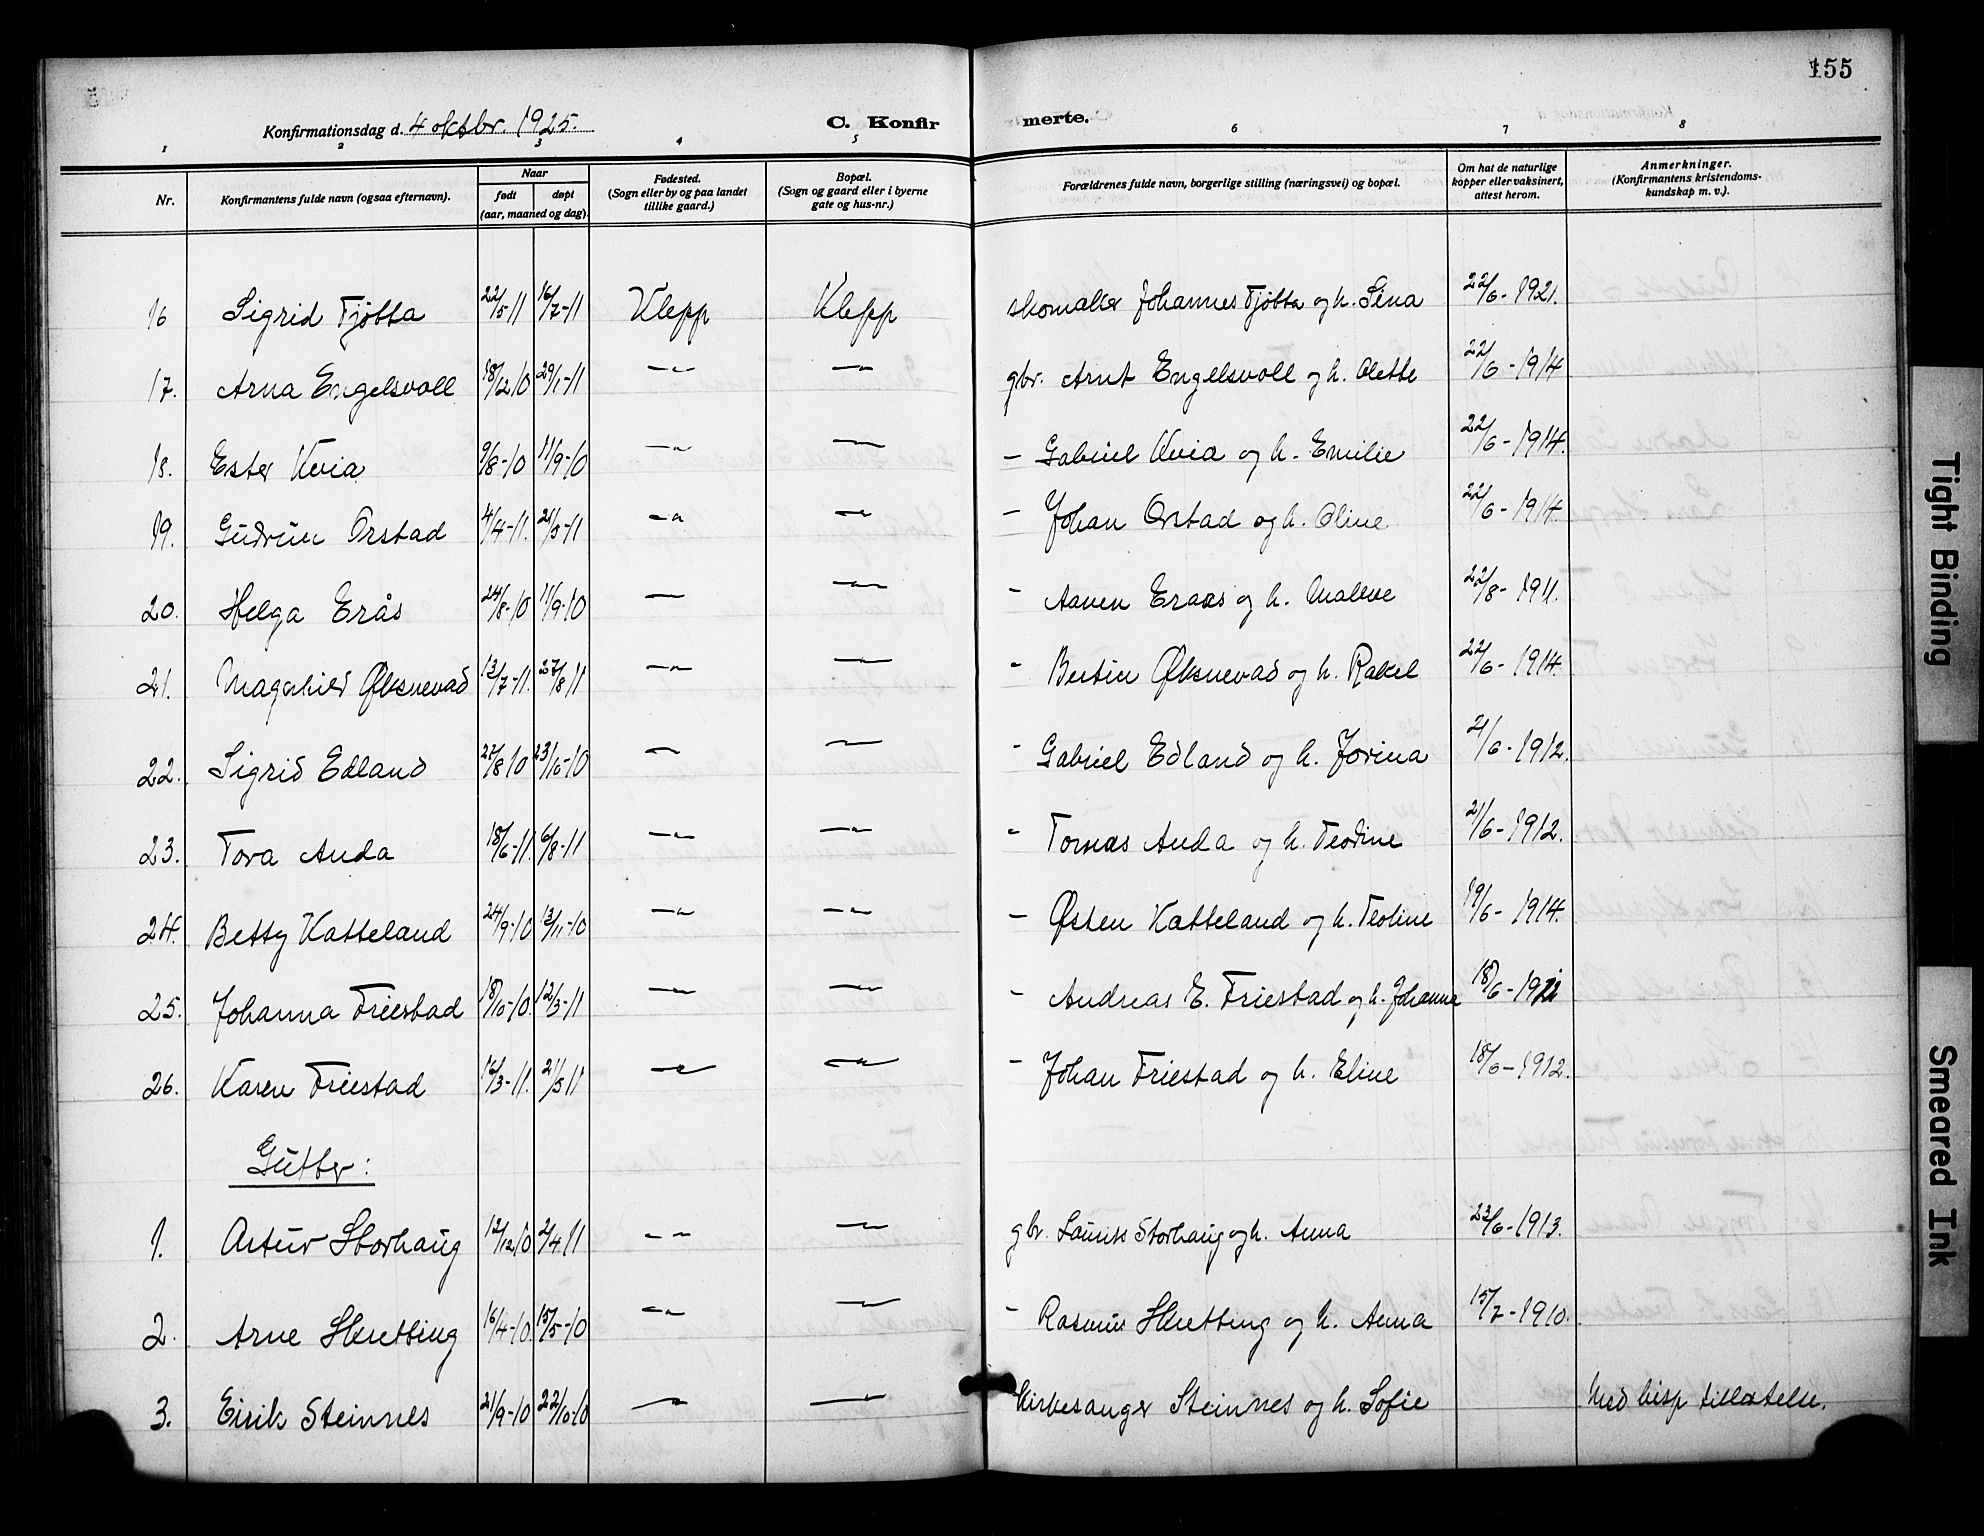 155
Konfirmationsdag d. 4 oktbr. 1925.
C. Konfirmerte.
1 2 3 4 5 6 7 8
Nr. Konfirmantens fulde navn (ogsaa efternavn). Naar født døpt (aar, maaned og dag). Fødested. (Sogn eller by og paa landet tillike gaard.) Bopæl. (Sogn og gaard eller i byerne gate og hus-nr.) Forældrenes fulde navn, borgerlige stilling (næringsvei) og bopæl. Om hat de naturlige kopper eller vaksinert, attest herom. Anmerkninger. (Konfirmantens kristendomskundskap m. v.).
16 Sigrid Tjøtta 22/5-11 16/7-11 Klepp Klepp skomaker Johannes Tjøtta og h. Sina 22/6-1921.
17. Arna Engelsvoll 18/12 10 29/1-11 -"- -"- gbr. Arnt Engelsvoll og h. Olette 22/6-1914
18. Ester Kvia 9/8-10 11/9-10 -"- -"- - Gabriel Kvia og h. Emilie 22/6-1914.
19. Gudrun Orstad 4/4-11. 21/5-11 -"- -"- - Johan Orstad og h. Oline 22/6-1914.
20. Helga Erås 24/8-10 11/9-10 -"- -"- - Aanen Eraas og h. Malene 22/8-1911.
21. Magnhild Øksnevad 13/7-11. 27/8 11 -"- -"- - Bertin Øksnevad og h. Rakel 22/6-1914.
22. Sigrid Edland 27/8 10 23/10-10 -"- -"- - Gabriel Edland og h. Jorina 21/6-1912.
23. Tora Anda 18/6-11. 6/8-11 -"- -"- - Tomas Anda og h. Teodine 21/6-1912.
24. Betty Katteland 24/9-10 13/11-10 -"- -"- - Østen Katteland og h. Teoline 19/6-1914.
25. Johanna Friestad 18/10-10. 12/3-11 -"- -"- - Andreas E. Friestad og h. Johanna 18/6-
26. Karen Friestad 16/3-11. 21/5 11 -"- -"- - Johan Friestad og h. Eline 18/6-1912.
Gutter:
1. Artur Storhaug 12/12 10 2/4 11 -"- -"- gbr. Laurits Storhaug og h. Anna 23/6-1913.
2. Arne Skretting 16/4-10 15/5-10 -"- -"- - Rasmus Skretting og h. Anna 15/7-1910.
3. Eirik Steinnes 21/9-10 22/10-10 -"- -"- Kirkesanger Steinnes og h. Sofie Med bisp tillatelse.
Tight Binding
Smeared Ink